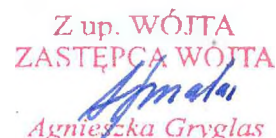 Z up. WÓJTA
ZASTĘPCA WÓJTA
Agnieszka Gryglas